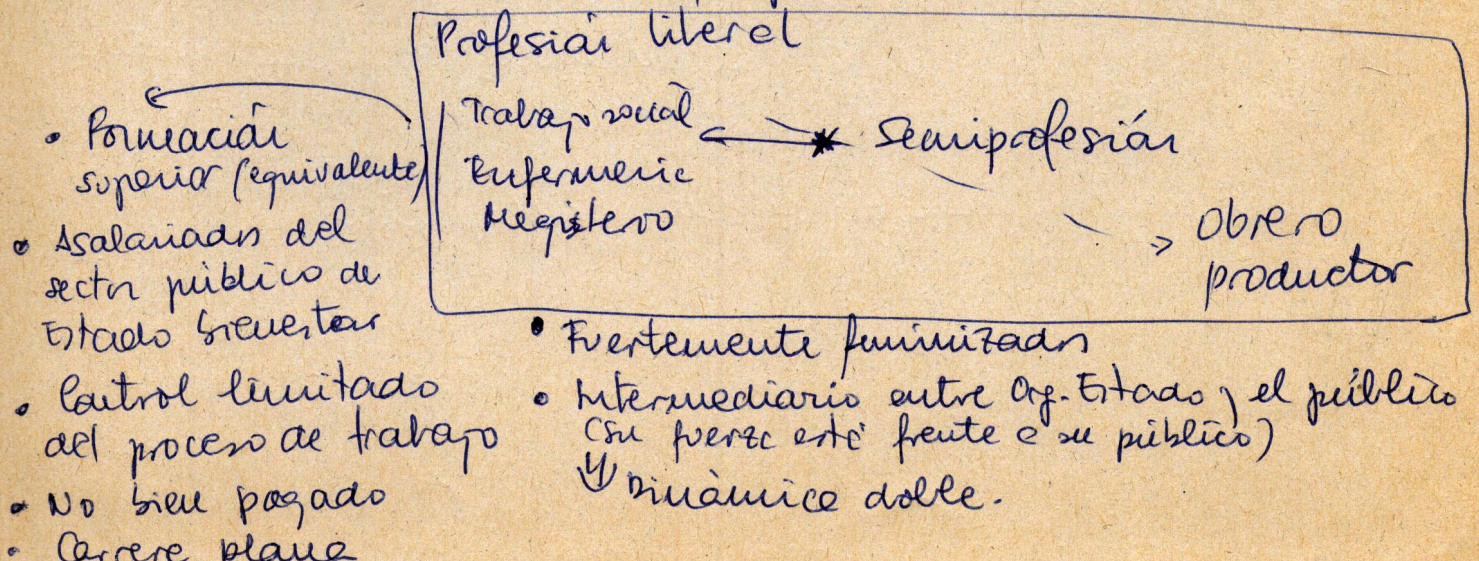 Profesión liberal
Trabajo social
Enfermería
Magisterio
Semiprofesión
Obrero
productor
• Formación
superior (equivalente)
• Asalariados del
sector público de
Estado bienestar
• Control limitado
del proceso de trabajo
• No bien pagado
• Carrera plana
• Fuertemente feminizados
• Intermediario entre Org. Estado y el público
(su fuerza está frente a su público)
Dinámica doble.